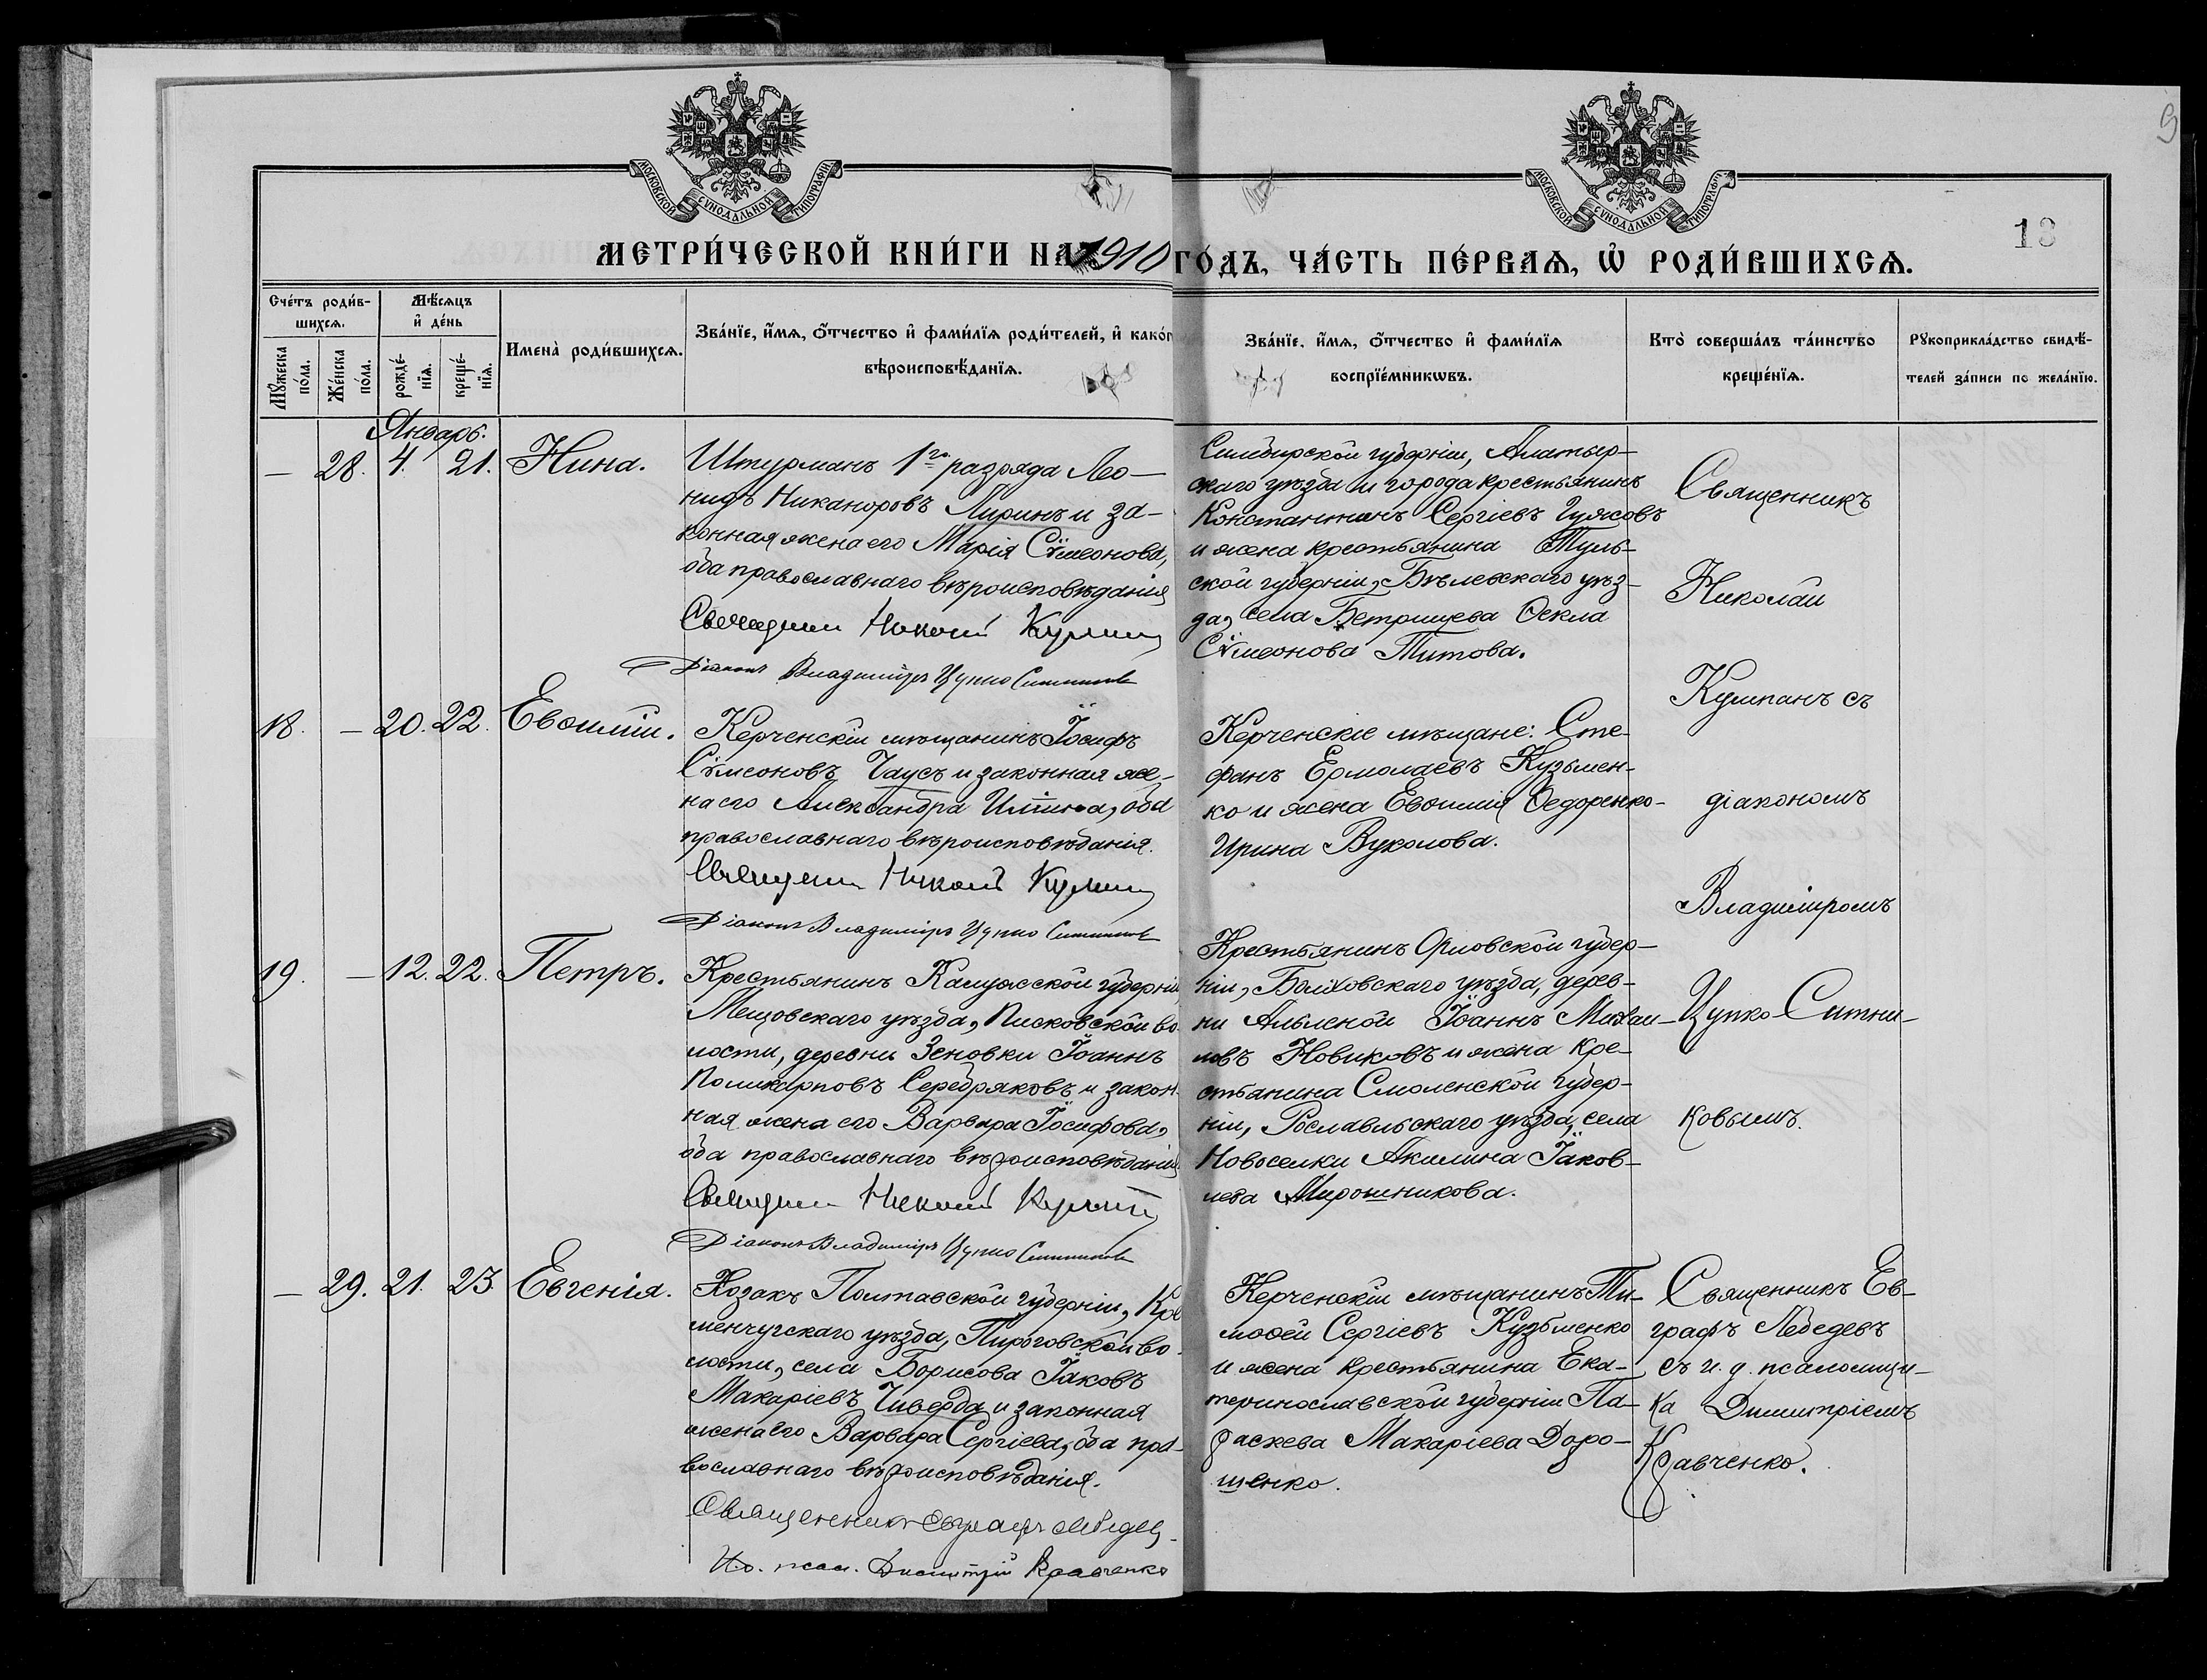 9
МОСКОВСКОЙ СѴНОДАЛЬНОЙ ТИПОГРАФІИ
МОСКОВСКОЙ СѴНОДАЛЬНОЙ ТИПОГРАФІИ
18
МЕТРИ́ЧЕСКОЙ КНИ́ГИ НА 1910 ГО́ДЪ, ЧА́СТЬ ПЕ́РВАѦ, Ѡ҆ РОДИ́ВШИХСѦ.
Сче́тъ роди́в-
шихсѧ.
Мꙋ́жеска по́ла.
Же́нска по́ла.
Мѣ́сѧцъ и҆ де́нь
рожде́-нїѧ.
креще́-нїѧ.
Имена̀ роди́вшихсѧ.
Зва́нїе, и҆́мѧ, ѻ҆́тчество и҆ фами́лїѧ роди́телей, и҆ како́г
вѣроисповѣ́данїѧ.
Зва́нїе, и҆́мѧ, ѻ҆́тчество и҆ фами́лїѧ
воспрїе́мникѡвъ.
Кто̀ соверша́лъ та́инство
креще́нїѧ.
Рꙋкоприкла́дство свидѣ́-
телей за́писи по жела́нїю.
Январь.
— 28. 4. 21. Нина.
Штурманъ 1го разряда Лео-
нидъ Никаноровъ Лиринъ и за-
конная жена его Марія Сѵмеонова,
оба православнаго вѣроисповѣданія
Священник Николай Кумпан
Діаконъ Владиміръ Цупко Ситников
Симбирской губерніи, Алатыр-
скаго уѣзда и города крестьянинъ
Константинъ Сергіевъ Гужовъ
и жена крестьянина Туль-
ской губерніи, Бѣлевскаго уѣз-
да, села Бетрищева Ѳекла
Сѵмеонова Титова.
Священникъ
Николай
Кумпанъ съ
діакономъ
Владиміромъ
Цупко-Ситни-
ковымъ.
18. — 20. 22. Евѳимій.
Керченскій мѣщанинъ Іосифъ
Сѵмеоновъ Чаусъ и законная же-
на его Александра Иліина, оба
православнаго вѣроисповѣданія.
Священник Николай Кумпан
Діаконъ Владиміръ Цупко Ситников
Керченскіе мѣщане: Сте-
фанъ Ермолаевъ Кузьмен-
ко и жена Евѳимія Ѳедоренко-
Ирина Вуколова.
19. — 12. 22. Петръ.
Крестьянинъ Калужской губерніи
Мещовскаго уѣзда, Писковской во-
лости, деревни Зеновки Іоаннъ
Поликарповъ Серебряковъ и закон-
ная жена его Варвара Іосифова,
оба православнаго вѣроисповѣданія
Священник Николай Кумпан
Діаконъ Владиміръ Цупко Ситников
Крестьянинъ Орловской губер-
ніи, Болховскаго уѣзда, дерев-
ни Альпеной Іоаннъ Михаи-
ловъ Новиковъ и жена кре-
стьянина Смоленской губер-
ніи, Рославльскаго уѣзда, села
Новоселки Акилина Іаков-
лева Мирошникова.
— 29. 21. 23. Евгенія.
Козакъ Полтавской губерніи, Кре
менчугскаго уѣзда, Пироговской во-
лости, села Борисова Іаковъ
Макаріевъ Чиверда и законная
жена его Варвара Сергіева, оба пра-
вославнаго вѣроисповѣданія.
Священникъ Евграфъ Лебедев
И.о. псал. Димитрій Кравченко
Керченскій мѣщанинъ Ти-
моѳей Сергіевъ Кузьменко
и жена крестьянина Ека-
теринославской губерніи Па-
раскева Макаріева Доро-
шенко.
Священникъ Ев-
графъ Лебедевъ
съ и. д. псаломщи-
ка Димитріемъ
Кравченко.